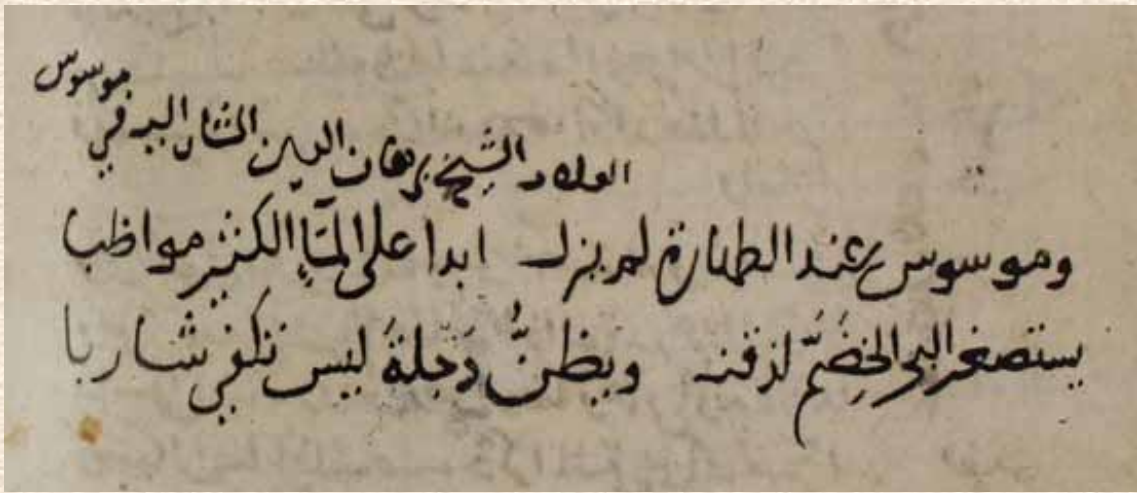 الشيخ برهان الدين المشار اليه في موسوس
وموسوس عند الطهارة لم يزل ابدا على المآءِ الكثير مواظبا
يستصغر البحر الخِضَمّ لذقنه ويظنُّ دَجلةَ ليس تكفي شاربا